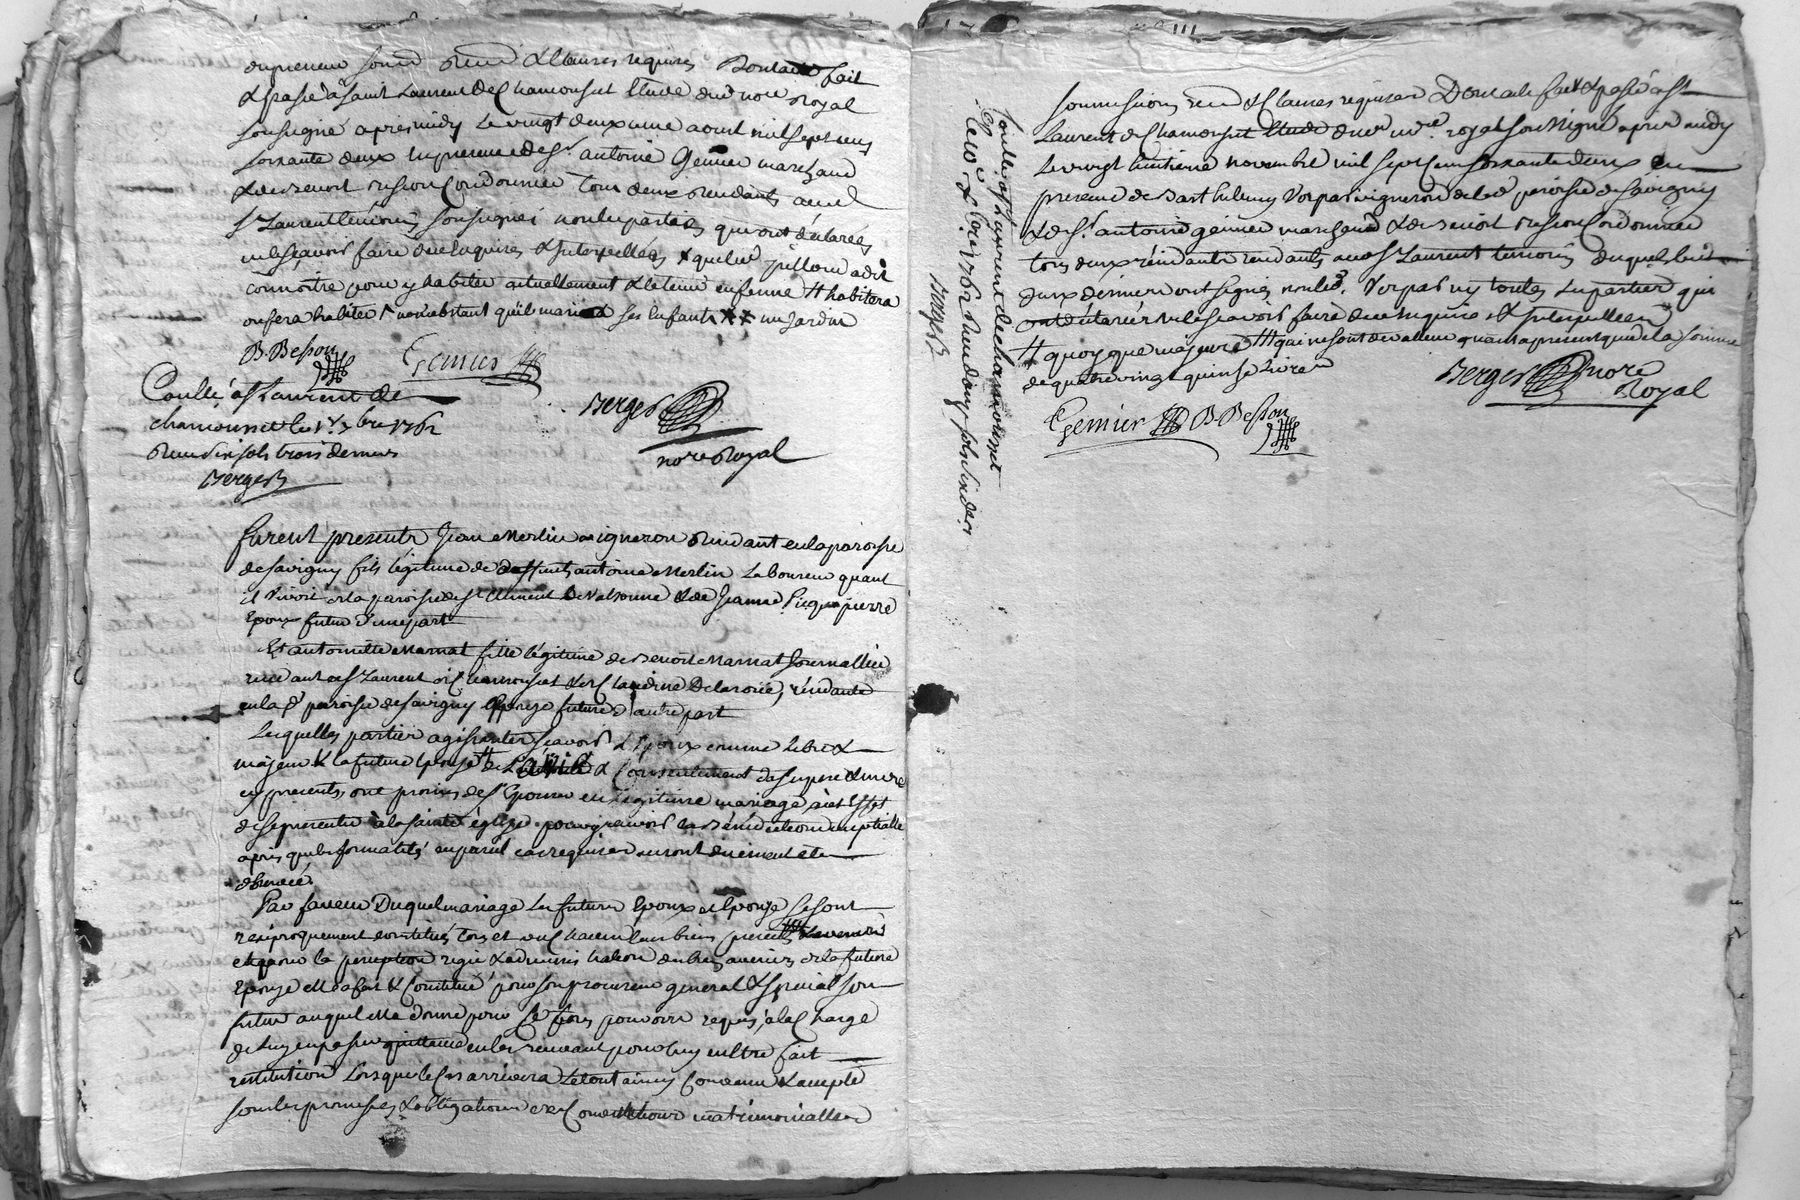 du preneur soumd renond & clauses requises Dont acte fait
& passé à Saint Laurent de Chamousset Etude dud nore Royal
soussigné apres midy le vingt deuxieme aoust mil sept cens
soixante deux en presence de sr antoine Genier marchand
& de Benoit Besson Cordonnier tous deux residants aud
st Laurent temoins soussignés non les parties qui ont déclarées
ne le sçavoir faire de ce enquises & Interpellées & que led
connoitre pour y habiter actuellement & le tenir en ferme # habitera
ou fera habiter nonobstant qu'il mariat ses Enfants ×× un Jardin
B. Besson Genier
Conllé à st Laurent de
chamousset le 1r 7bre 1762
Receu dix sols trois deniers
Berger
Berger
nore Royal
furent presents Jean Merlin vigneron residant en la paroisse
de savigny fils légitime de deffunt antoine Merlin Laboureur quant
il vivoit de la paroisse de st Clement de Valsonne & de Jeanne Piquepierre
Epoux futur d'une part
Et antoinette Marnat fille légitime de Benoit Marnat Journallier
residant à st Laurent de Chamousset & de Claudine Delaroüe, résidante
en la d paroisse de savigny Epouse future d'autre part
Lesquelles parties agissantes sçavoir L'Epoux comme Libre &
majeur & la future Epouse # de L'avis & Consentement de ses pere & mere
cy presents, ont promis de s'Epouser en Legitime mariage à cet Effet
de se presenter à la sainte église pour y recevoir la Bénédiction nuptialle
après que les formalités en pareil cas requises auront duement été
observées
Par faveur Duquel mariage les futurs Epoux et Epouse se sont
reciproquement constitués tous et un chacun leurs biens presents & avenir
et pour la perception regie & administration des biens avenirs de la future
Epouse elle a fait & Constitué pour son procureur general & special son
futur auquel elle donne pour ce tous pouvoirs requis, à la Charge
de luy en passer quittance en les recevant pour luy en Etre fait
restitution Lorsque le Cas arrivera Le tout ainsy Convenu & accepté
sous les promesses & obligations et Conventions matrimonialles
Conllé à st Laurent de chamousset
le 10e xbre 1762 Receu douze sols six drs
Berger
soumissions renond & Clauses requises Dont acte fait & passé à st
Laurent de Chamousset Etude du nre royal soussigné apres midy
Le vingt huitieme novembre mil sept cens soixante deux en
presence de Barthelemy Vorpas vigneron de lad paroisse de savigny
& de sr antoine genier marchand & de Benoit Besson Cordonnier
tous deux résidants aud st Laurent temoins desquels les
deux derniers ont signés non led. Vorpas ny toutes les parties qui
ont déclarés ne le sçavoir faire de ce enquises & Interpellées
# quoyque majeure ## qui ne sont de valleur quant à present que de la somme
de quatre vingt quinze Livres
Berger nore
Royal
Genier B. Besson